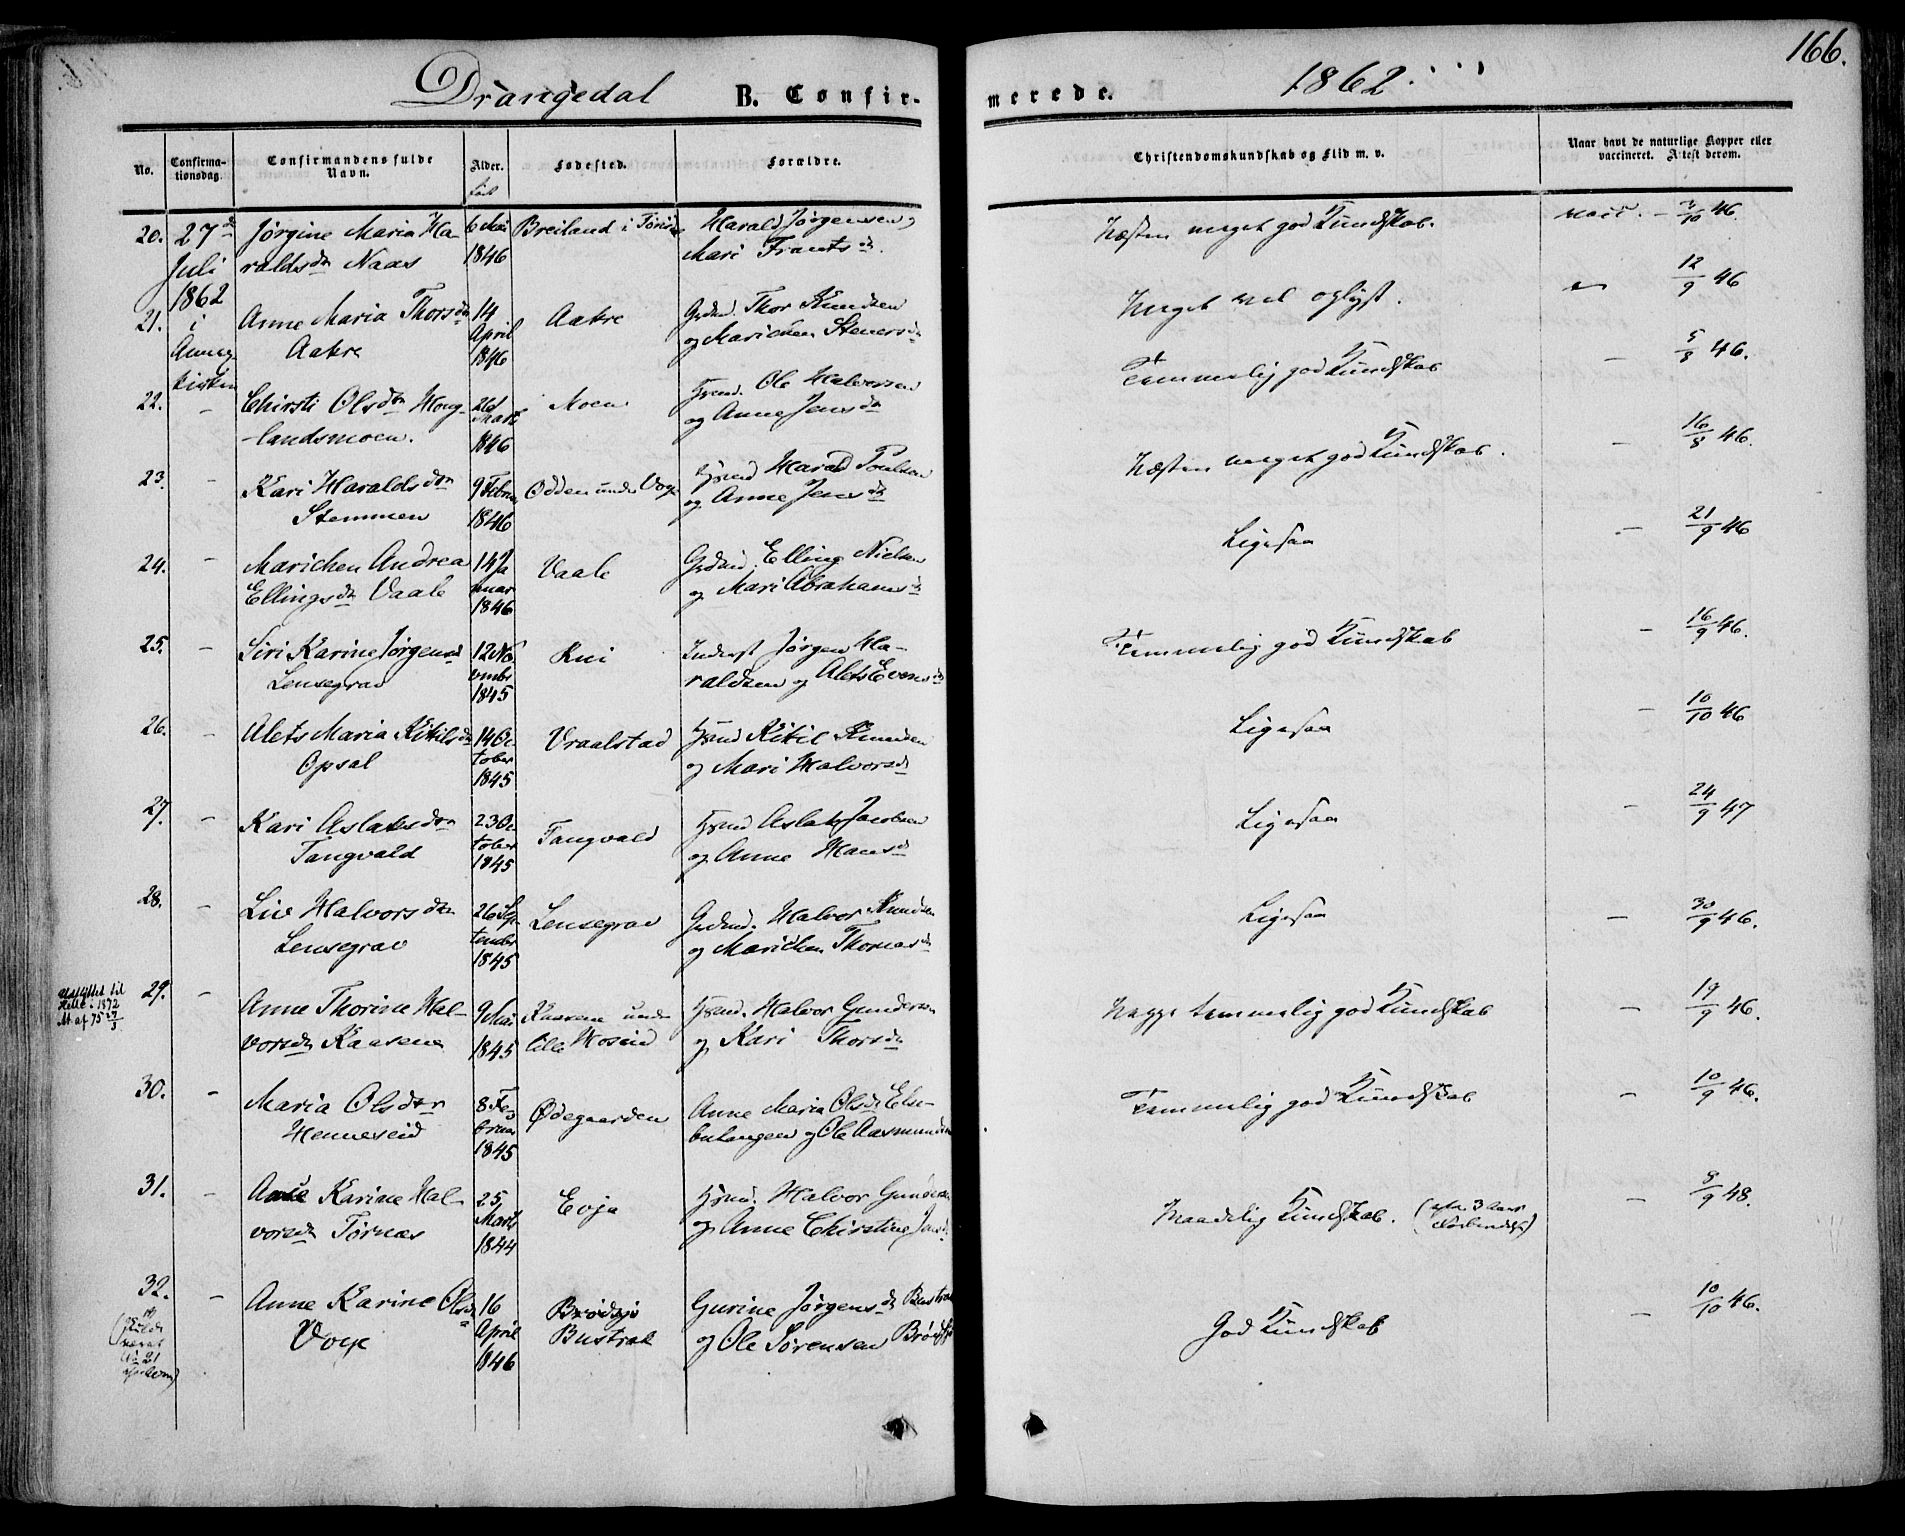 166.
Drangedal B. Confirmerede. 1862.
No. Confirmationsdag. Confirmandens fulde Navn. Alder. Fødested. Forældre. Christendomskundskab og Flid m. v. Naar havt de naturlige Kopper eller vaccineret. Attest derom.
født
20. 27de Juli 1862 i Jørgine Maria Haraldsdtr Naas 6 Mai 1846 Breiland i Harald Jørgensen, Mari Frantsdtr. Næsten meget god Kundskab. vacc. – 3/10 46.
21. Anne Maria Thorsdtr Aakre 14 April 1846 Aakre Grdmd. Thor Knudsen og Marichen Stenersdtr Meget vel oplyst. 12/9 46
22. – Chirsti Olsdtr Houglandsmoen. 26 Marts 1846 Moen Hsmd. Ole Halvorsen og Anne Jensdtr Temmelig god Kundskab – 5/8 46.
23. – Kari Haraldsdtr Stemmen 9 Februar 1846 Odden under Voje Hsmd Harald Poulsen og Anne Jensdtr Næsten meget god Kundskab. – 16/8 46.
24. – Marichen Andrea Ellingsdtr Vaale 14 Januar 1846 Vaale Grdmd. Elling Nielsen og Mari Abrahamsdtr Ligesaa – 21/9 46
25. – Siri Karine Jørgensd Lensegrav 12 November 1845 Kui Inderst Jørgen Haraldsen og Alets Evensdtr Temmelig god Kundskab – 16/9 46.
26. – Alets Maria Kitilsdtr Opsal 14 October 1845 Vraalstad Hsmd Kitil Knudsen og Mari Halvorsdtr Ligesaa – 10/10 46
27. – Kari Aslaksdtr Tangvald 23 October 1845 Tangvald Hsmd Aslak Jacobsen og Anne Hansdtr Ligesaa – 24/9 47
28. – Liv Halvorsdtr Lensegrav 26 September 1845 Lensegrav Grdmd. Halvor Knudsen og Marichen Thomasdtr Ligesaa – 30/9 46.
Udflyttet til i 1872
29. – Anne Thorine Halvorsdtr Kaasene 9 Mai 1845 Kaasene under Hsmd. Halvor Gundersen og Kari Thorsdtr Neppe temmelig god Kundskab – 19/9 46.
30. – Maria Olsdtr Henneseid 8 Februar 1845 Ødegaarden Anne Maria Olsdtr og Ole Aasmundsen Temmelig god Kundskab – 10/9 46.
31. – Karine Halvorsdtr Tørnes 25 Marts 1844 Evja Hsmd. Halvor Gundersen og Anne Chirstine Jensd. Maadelig Kundskab. (efter 3 Aars – 3/9 48.
32. – Anne Karine Olsdtr Voje 16 April 1846 Brødsjø Bustrak Gurine Jørgensdtr og Ole Sørensen Brødsjø God Kundskab – 10/10 46.